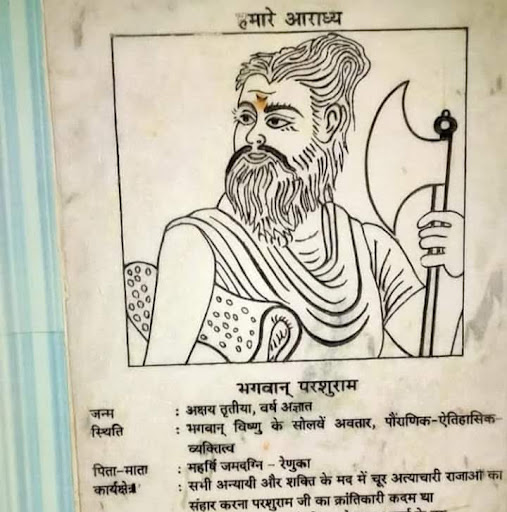 हमारे आराध्य
भगवान् परशुराम
जन्म : अक्षय तृतीया, वर्ष अज्ञात
स्थिति : भगवान् विष्णु के सोलवें अवतार, पौराणिक-ऐतिहासिक-
व्यक्तित्व
पिता-माता : महर्षि जमदग्नि - रेणुका
कार्यक्षेत्र : सभी अन्यायी और शक्ति के मद में चूर अत्याचारी राजाओं का
संहार करना परशुराम जी का क्रांतिकारी कदम था